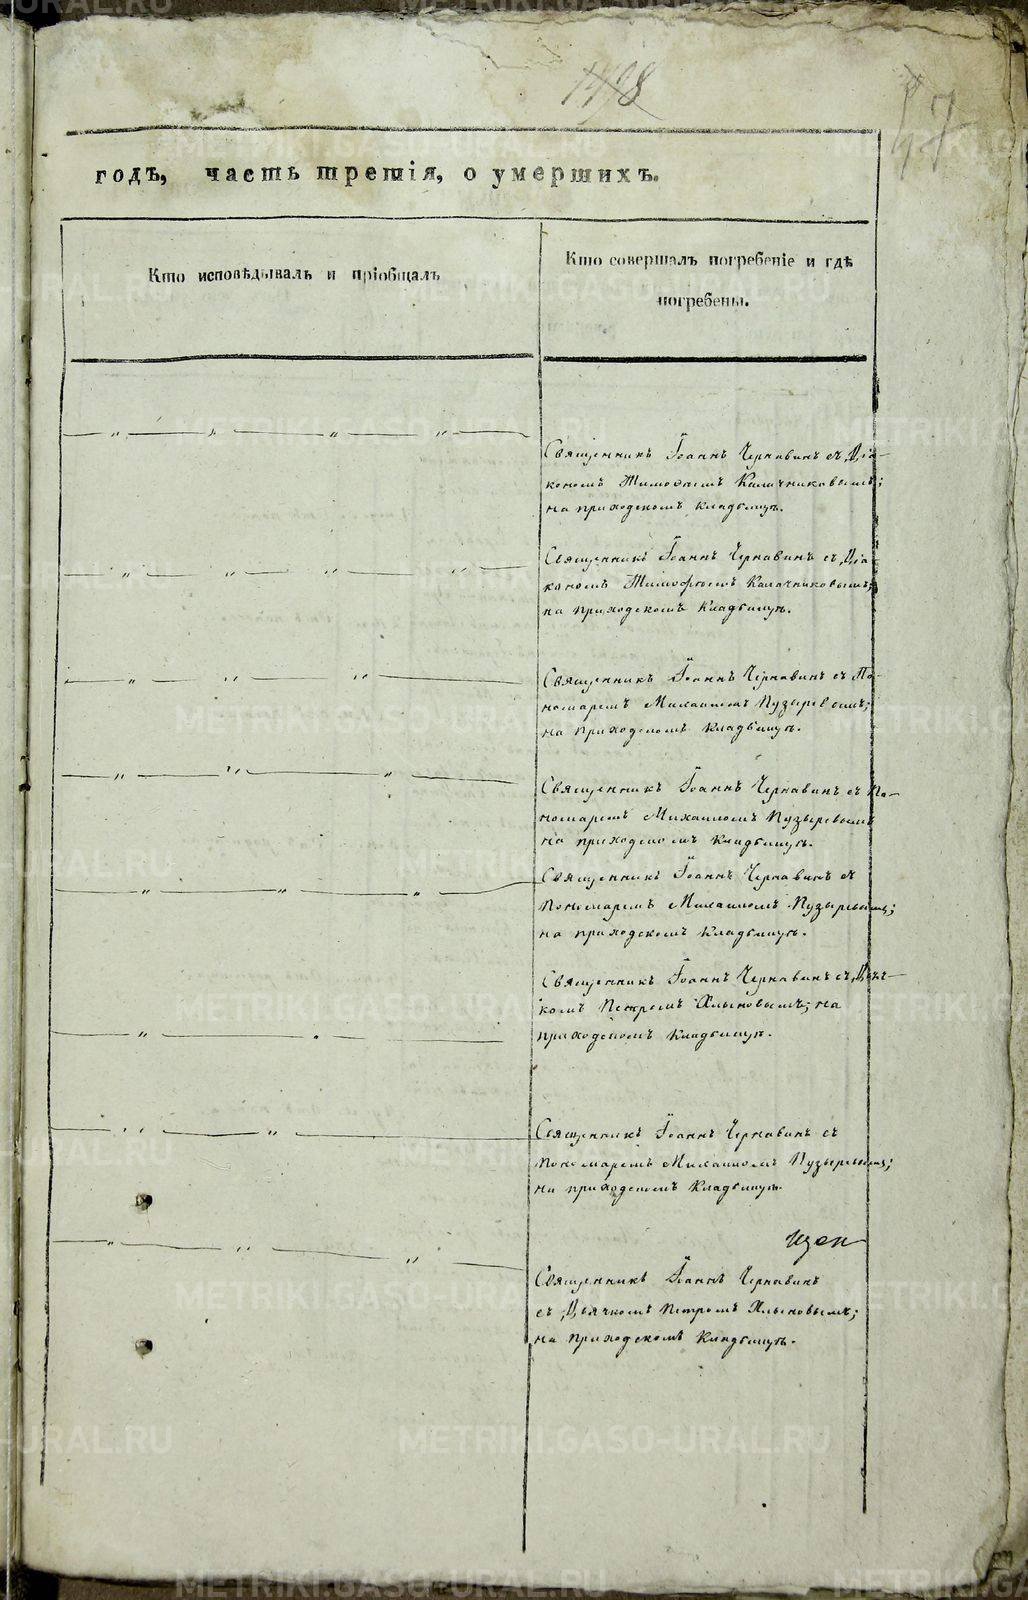 1498
57
годъ, часть третія, о умершихъ.
Кто исповѣдывалъ и пріобщалъ
Кто совершалъ погребеніе и гдѣ
погребены.
Священникъ Іоаннъ Чернавинъ съ Діа-
кономъ Тимофѣемъ Калачниковымъ;
на приходскомъ кладбищѣ.
Священникъ Іоаннъ Чернавинъ съ Діа-
кономъ Тимофѣемъ Калачниковымъ;
на приходскомъ кладбищѣ.
Священникъ Іоаннъ Чернавинъ съ По-
номаремъ Михаиломъ Пузыревымъ;
на приходскомъ кладбищѣ.
Священникъ Іоаннъ Чернавинъ съ По-
номаремъ Михаиломъ Пузыревымъ
на приходскомъ кладбищѣ.
Священникъ Іоаннъ Чернавинъ съ
Пономаремъ Михаиломъ Пузыревымъ;
на приходскомъ кладбищѣ.
Священникъ Іоаннъ Чернавинъ съ Дьяч-
комъ Петромъ Хлыновымъ; на
приходскомъ кладбищѣ.
Священникъ Іоаннъ Чернавинъ съ
Пономаремъ Михаиломъ Пузыревымъ;
на приходскомъ кладбищѣ.
Священникъ Іоаннъ Чернавинъ
съ Дьячкомъ Петромъ Хлыновымъ;
на приходскомъ кладбищѣ.
METRIKI.GASO-URAL.RU